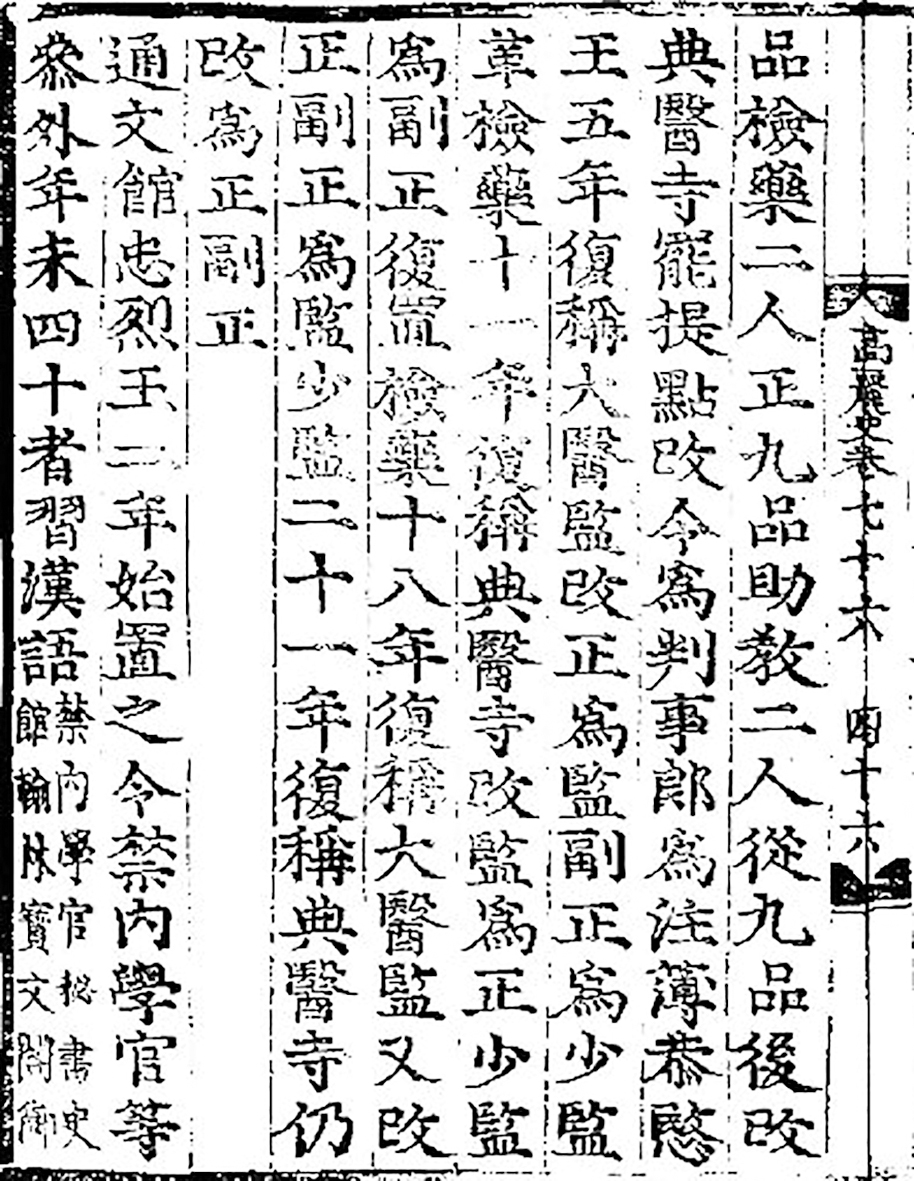 高麗史卷七十六 四十六
品檢藥二人正九品助教二人從九品後改
典醫寺罷提點改令爲判事郞爲注薄恭愍
王五年復稱大醫監改正爲監副正爲少監
革檢藥十一年復稱典醫寺改監爲正少監
爲副正復置檢藥十八年復稱大醫監又改
正副正爲監少監二十一年復稱典醫寺仍
改爲正副正
通文館忠烈王二年始置之令禁內學官等
叅外年未四十者習漢語
禁內學官秘書史
館翰林寶文閣御